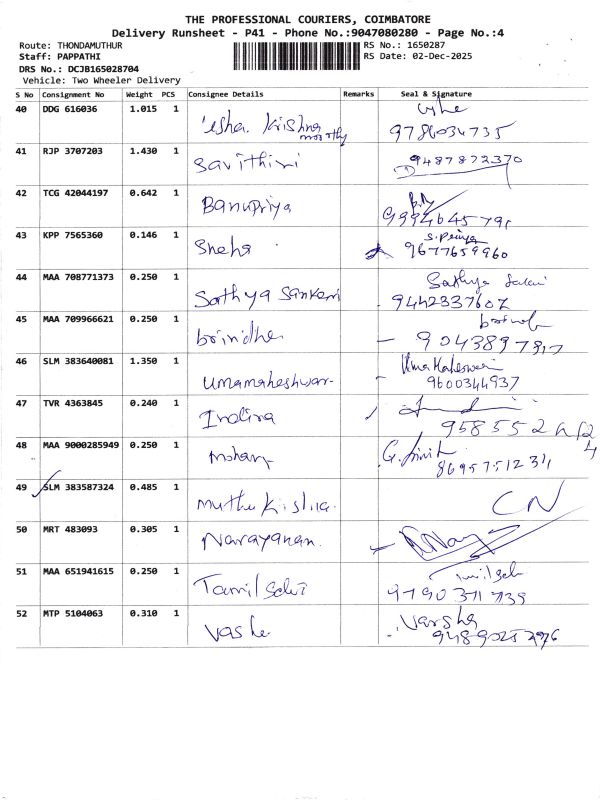 THE PROFESSIONAL COURIERS, COIMBATORE
Delivery Runsheet - P41 - Phone No.:9047080280 - Page No.:4
Route: THONDAMUTHUR RS No.: 1650287
Staff: PAPPATHI RS Date: 02-Dec-2025
DRS No.: DCJB165028704
Vehicle: Two Wheeler Delivery
S No Consignment No Weight PCS Consignee Details Remarks Seal & Signature
40 DDG 616036 1.015 1 Krishna moorthy
9786034735
41 RJP 3707203 1.430 1 Savithiri 9487872370
42 TCG 42044197 0.642 1 Banupriya
43 KPP 7565360 0.146 1 Sneha S. Priya
9677659960
44 MAA 708771373 0.250 1 Sathya Sankari Sathya
9442337607
45 MAA 709966621 0.250 1 brindha
46 SLM 383640081 1.350 1 Umamaheshwar. Uma Maheswari
9600344937
47 TVR 4363845 0.240 1 Indira
48 MAA 9000285949 0.250 1 mohan G.
49 SLM 383587324 0.485 1 muthu CN
50 MRT 483093 0.305 1 Narayanan.
51 MAA 651941615 0.250 1 Tamil Selvi
9790371739
52 MTP 5104063 0.310 1 Varsha